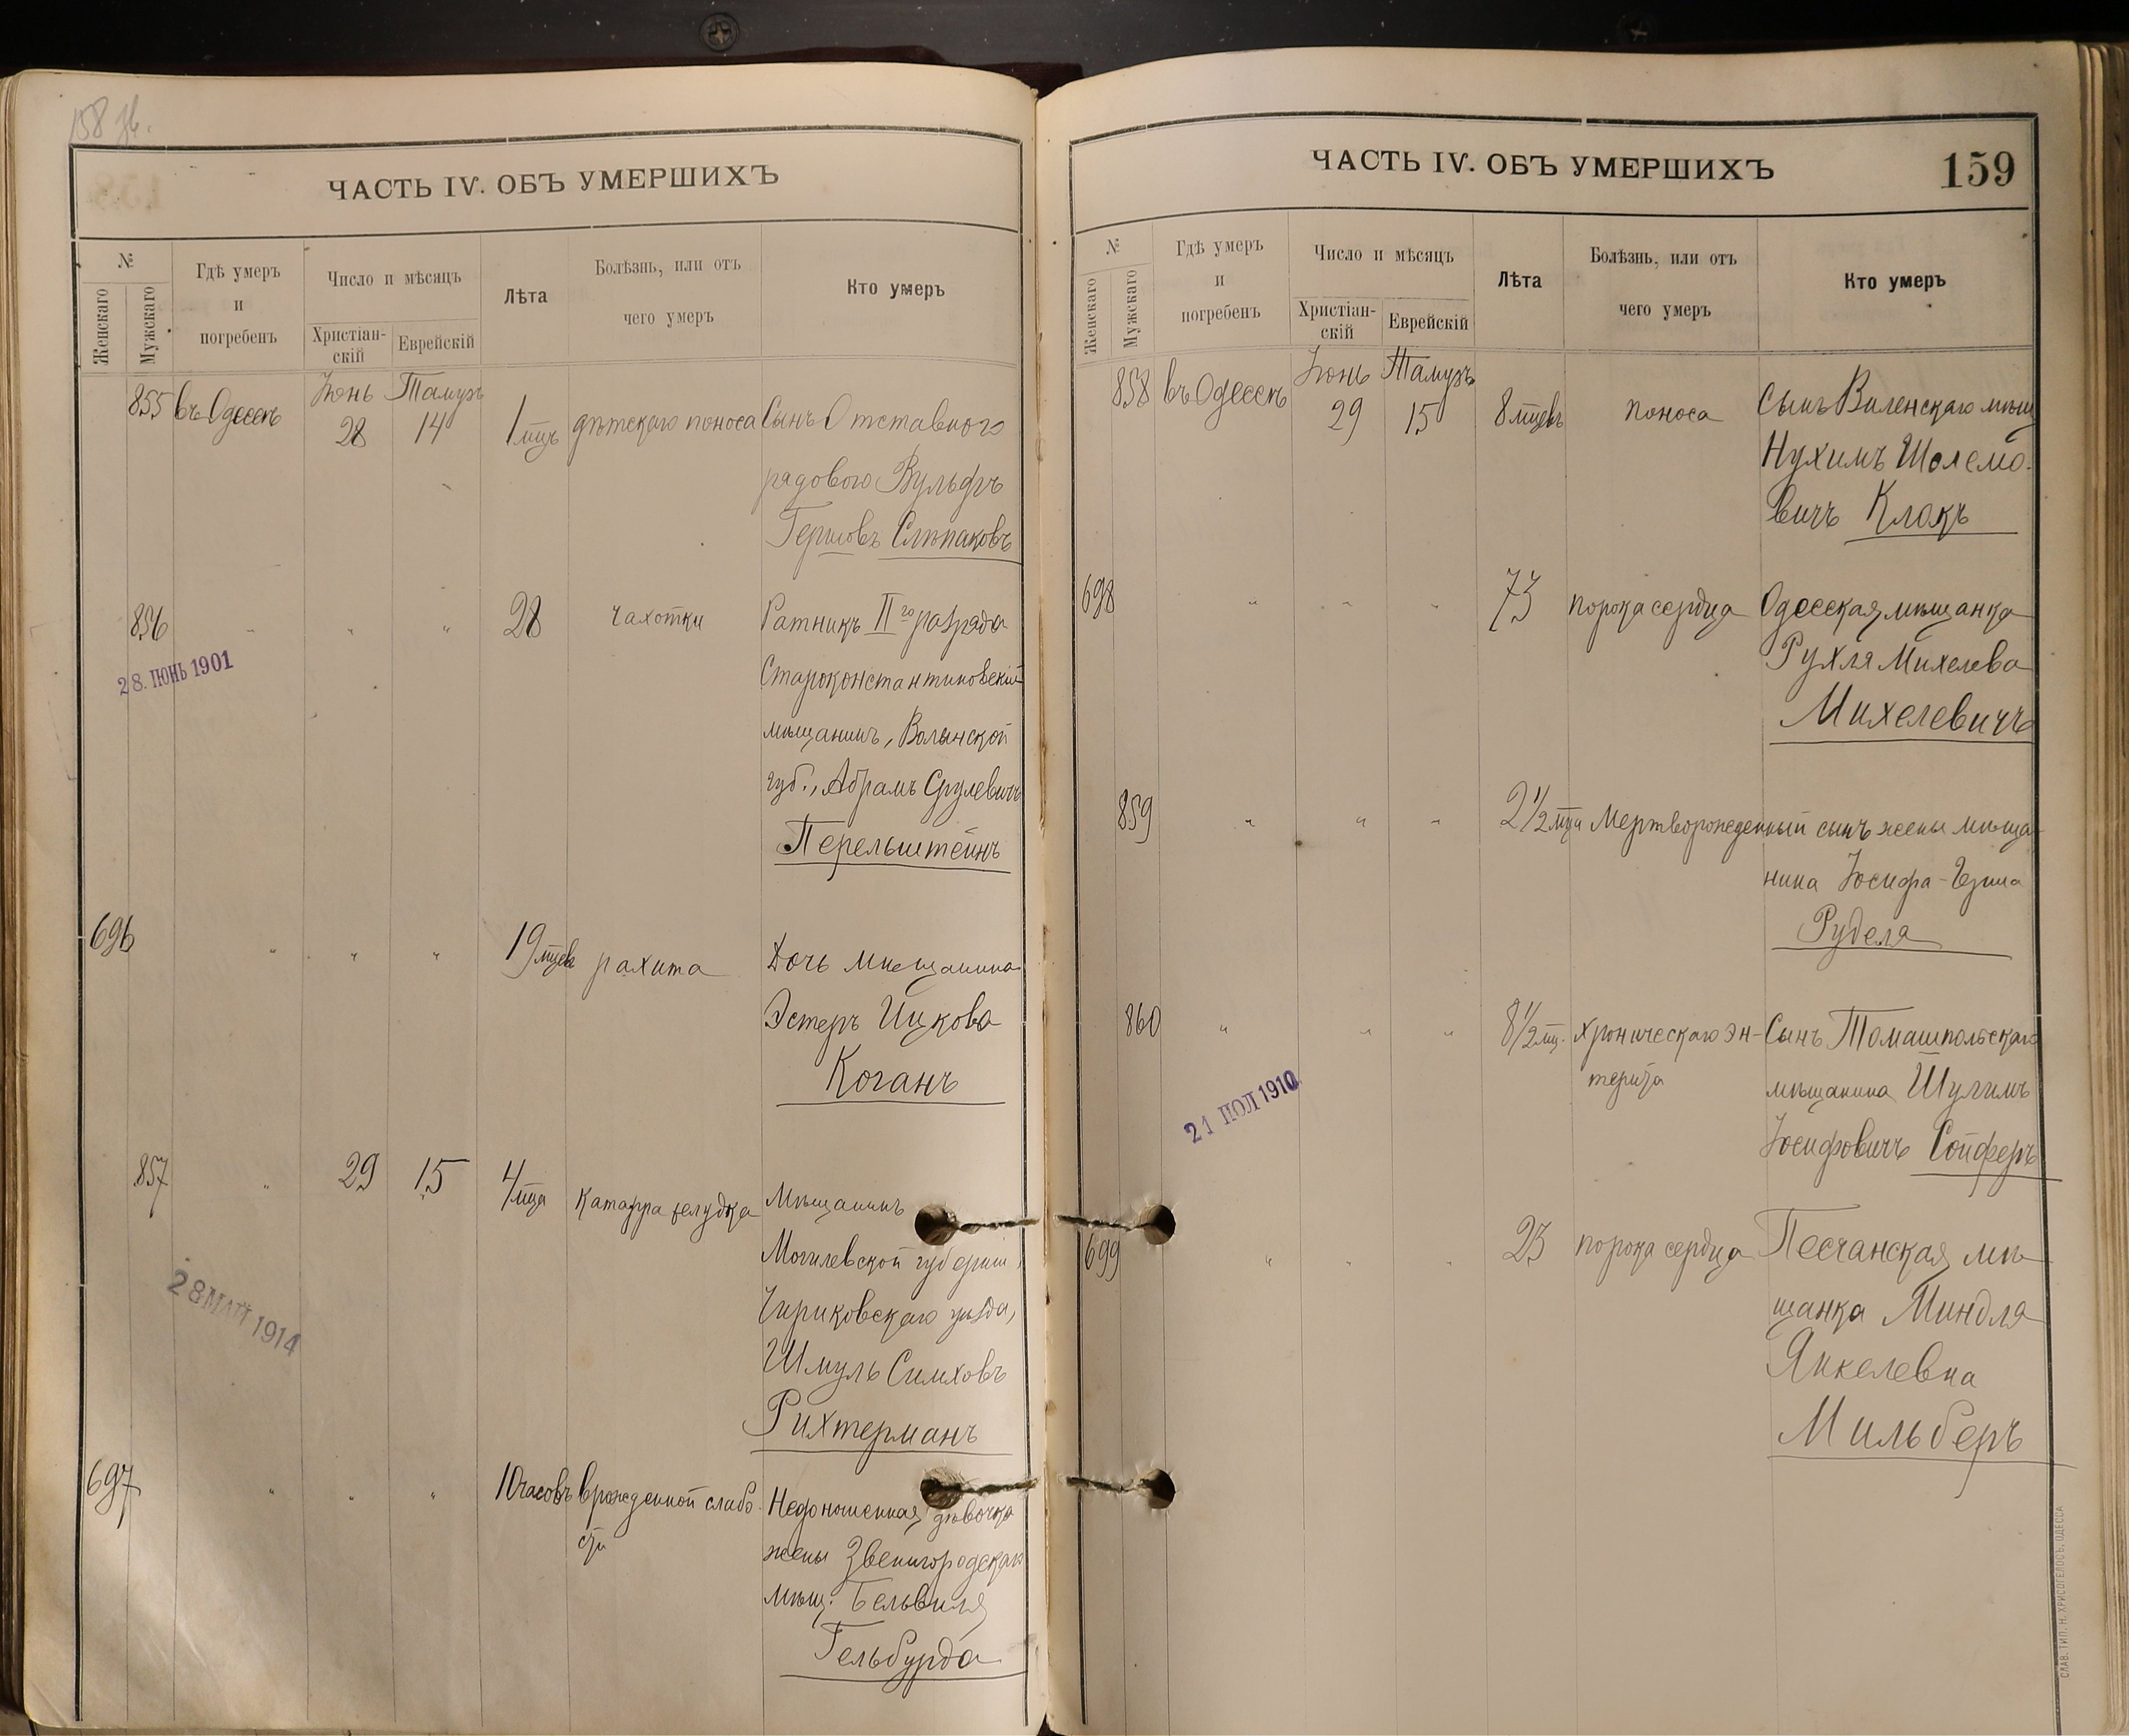 158 об.
ЧАСТЬ IV. ОБЪ УМЕРШИХЪ
№
Женскаго
Мужскаго
Гдѣ умеръ
и
погребенъ
Число и мѣсяцъ
Христіан-
скій
Еврейскій
Лѣта
Болѣзнь, или отъ
чего умеръ
Кто умеръ
855 въ Одессѣ Іюнь 28 Тамузъ 14 1 мцъ дѣтскаго поноса Сынъ Отставного
рядового Вульфъ
Гершовъ Слѣпаковъ
856 " " " 28 чахотки Ратникъ II го разряда
28. ІЮНЬ 1901
Староконстантиновскій
мѣщанинъ, Волынской
губ., Абрамъ Срулевичъ
Перельштейнъ
696 " " " 19 мцевъ рахита Дочь мѣщанина
Эстеръ Ицкова
Коганъ
857 " 29 15 4 мца катарра желудка Мѣщанинъ
Могилевской губерніи,
Чириковскаго уѣзда,
Шмуль Симховъ
Рихтерманъ
28 МАЙ 1914
697 " " " 10 часовъ врожденной слабо-
сти
Недоношенная дѣвочка
жены Звенигородскаго
мѣщ. Бельвиля
Гельбурда
ЧАСТЬ IV. ОБЪ УМЕРШИХЪ
159
№
Женскаго
Мужскаго
Гдѣ умеръ
и
погребенъ
Число и мѣсяцъ
Христіан-
скій
Еврейскій
Лѣта
Болѣзнь, или отъ
чего умеръ
Кто умеръ
858 въ Одессѣ Іюнь 29 Тамузъ 15 8 мцевъ поноса Сынъ Виленскаго мѣщ
Нухимъ Шолемо-
вичъ Клокъ
698 " " " 73 порока сердца Одесская мѣщанка
Рухля Михелева
Михелевичъ
859 " " " 2 1/2 мца Мертворожденный сынъ жены мѣща-
нина Іосифа-
Руделя
860 " " " 8 1/2 мц. хроническаго эн-
терита
Сынъ Томашпольскаго
мѣщанина Шулимъ
Іосифовичъ Сойферъ
21 ІЮЛ 1910
699 " " " 23 порока сердца Песчанская мѣ-
щанка Миндля
Янкелевна
Мильберъ
СЛАВ. ТИП. Н. ХРИСОГЕЛОСЪ, ОДЕССА